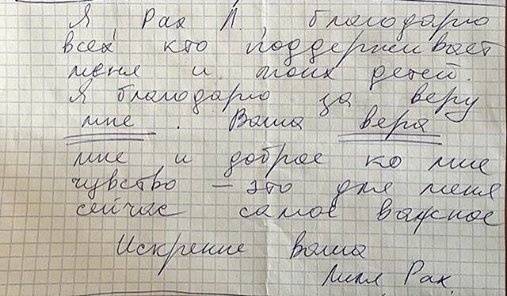 Я Рах Л. благодарю
всех кто поддерживает
меня и моих детей.
Я благодарю за веру
мне. Ваша вера
мне и доброе ко мне
чувство – это для меня
сейчас самое важное
Искренне Ваша
Лиля Рах.